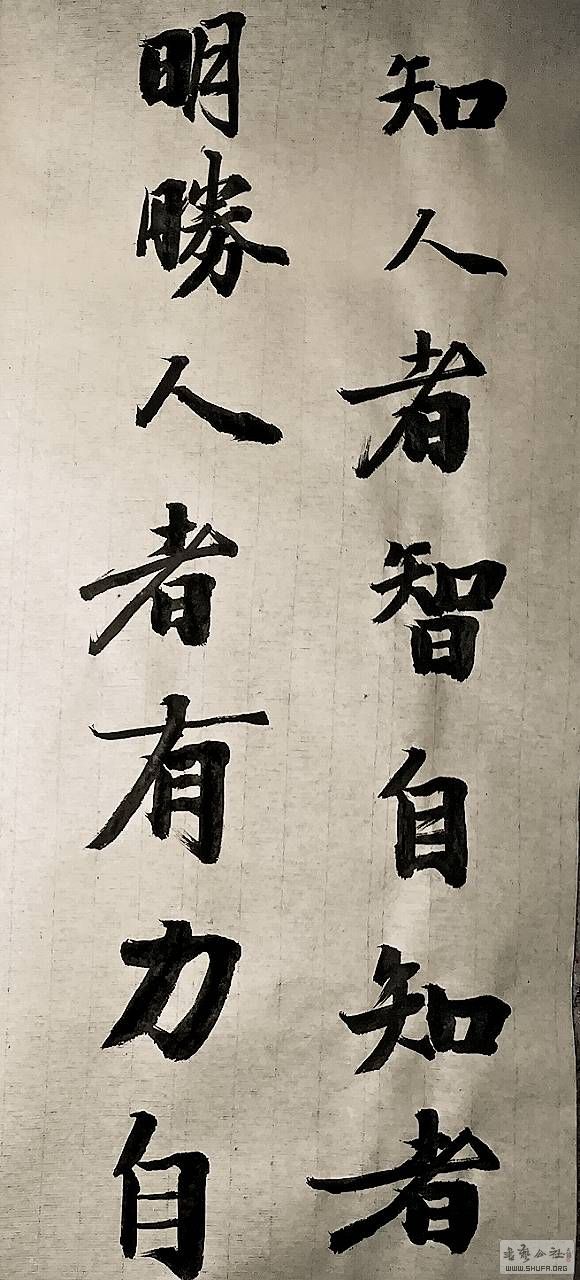 知人者智自知者
明勝人者有力自
WWW.SHUFA.ORG